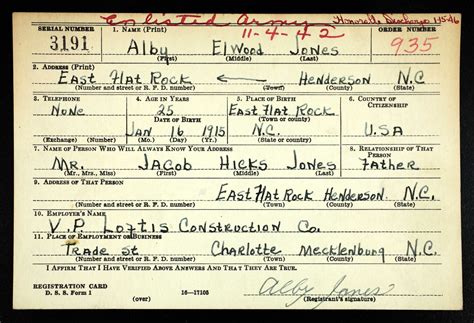 Enlisted Army Honorable Discharge 1-15-46
SERIAL NUMBER 1. NAME (Print) 11-4-42 ORDER NUMBER
3191 Alby ElWood Jones 935
(First) (Middle) (Last)
2. ADDRESS (Print)
EAST FlAT ROCK HENDERSON N.C.
(Number and street or R. F. D. number) (Town) (County) (State)
3. TELEPHONE 4. AGE IN YEARS 5. PLACE OF BIRTH 6. COUNTRY OF CITIZENSHIP
NONE 25 EAST FlAT ROCK
DATE OF BIRTH (Town or county)
JAN 16 1915 N.C. USA
(Exchange) (Number) (Mo.) (Day) (Yr.) (State or country)
7. NAME OF PERSON WHO WILL ALWAYS KNOW YOUR ADDRESS 8. RELATIONSHIP OF THAT PERSON
MR. JACOB HICKS JONES FATHER
(Mr., Mrs., Miss) (First) (Middle) (Last)
9. ADDRESS OF THAT PERSON
EAST FlAT ROCK HENDERSON N.C.
(Number and street or R. F. D. number) (Town) (County) (State)
10. EMPLOYER'S NAME
V.P. LOFTIS CONSTRUCTION Co.
11. PLACE OF EMPLOYMENT OR BUSINESS
TRADE ST CHARLOTTE MECKLENBURG N.C.
(Number and street or R. F. D. number) (Town) (County) (State)
I AFFIRM THAT I HAVE VERIFIED ABOVE ANSWERS AND THAT THEY ARE TRUE.
REGISTRATION CARD Alby Jones
D. S. S. Form 1 (over) 16—17105 (Registrant's signature)